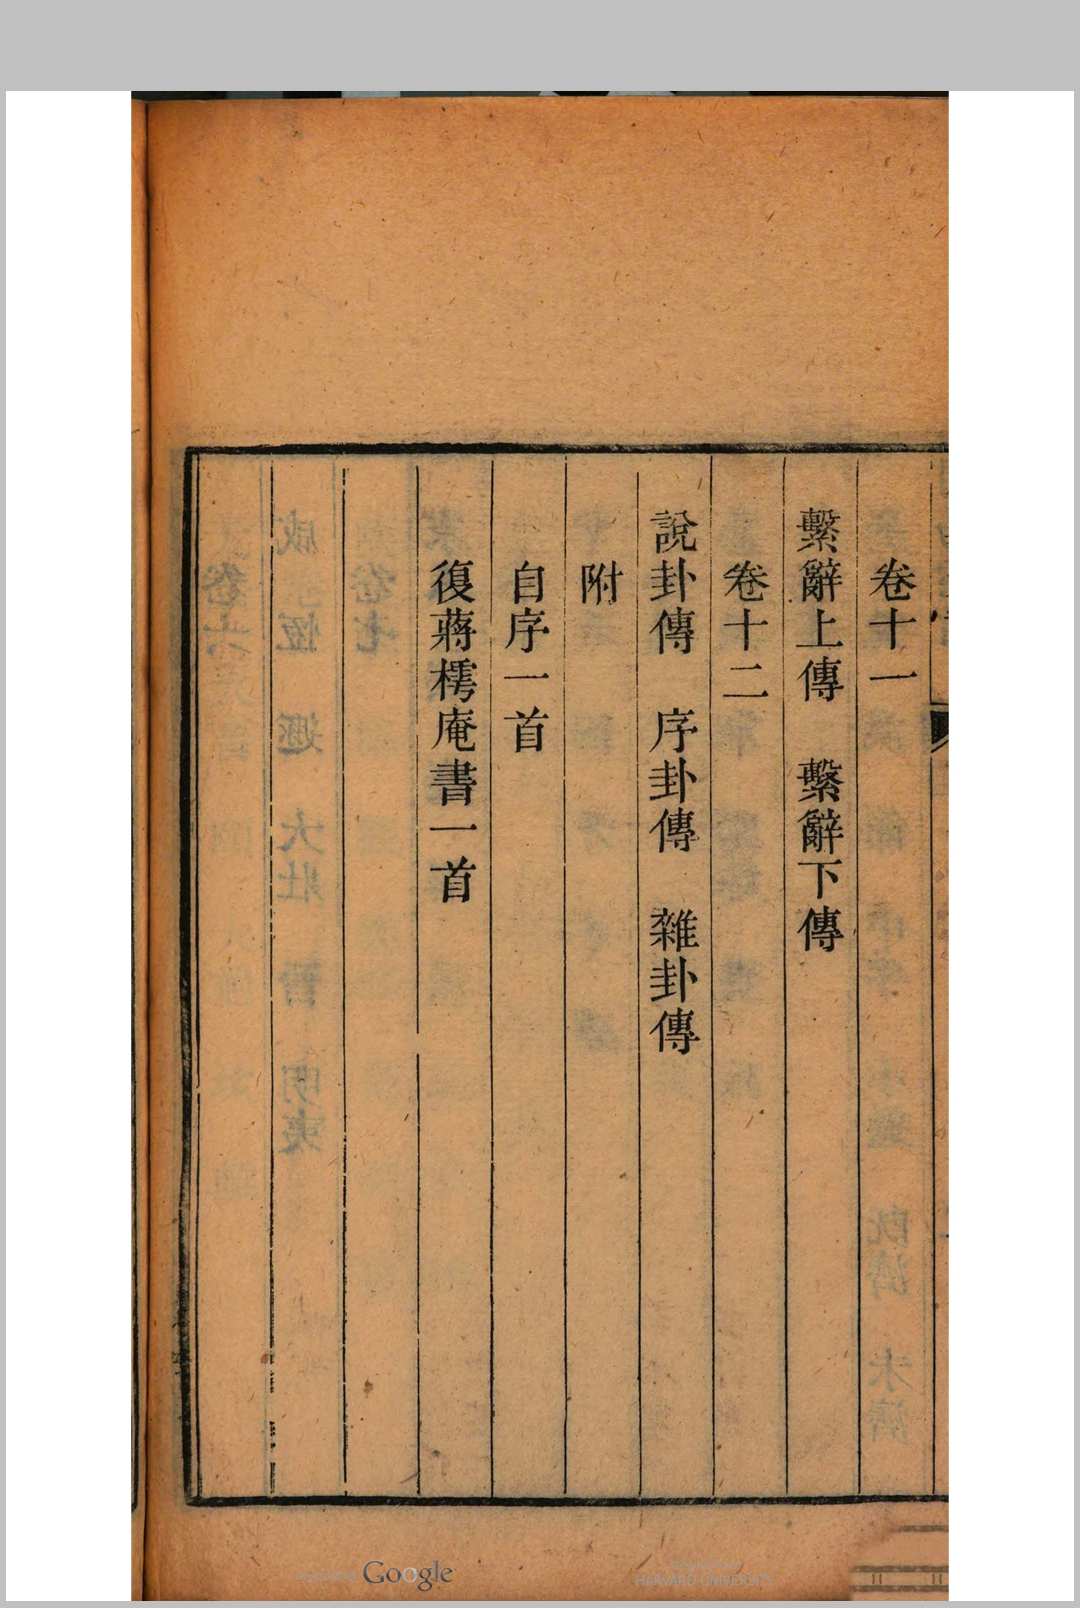 卷十一
繫辭上傳　繫辭下傳
卷十二
說卦傳　序卦傳　雜卦傳
附
自序一首
復蔣樗庵書一首
Google
HARVARD UNIVERSITY